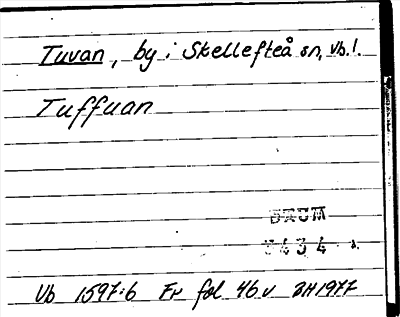 Tuvan, by i Skellefteå sn, Vb. l.
Tuffuan
DAUM
3434
Vb 1597:6 Fr fol 46 v BH 1977